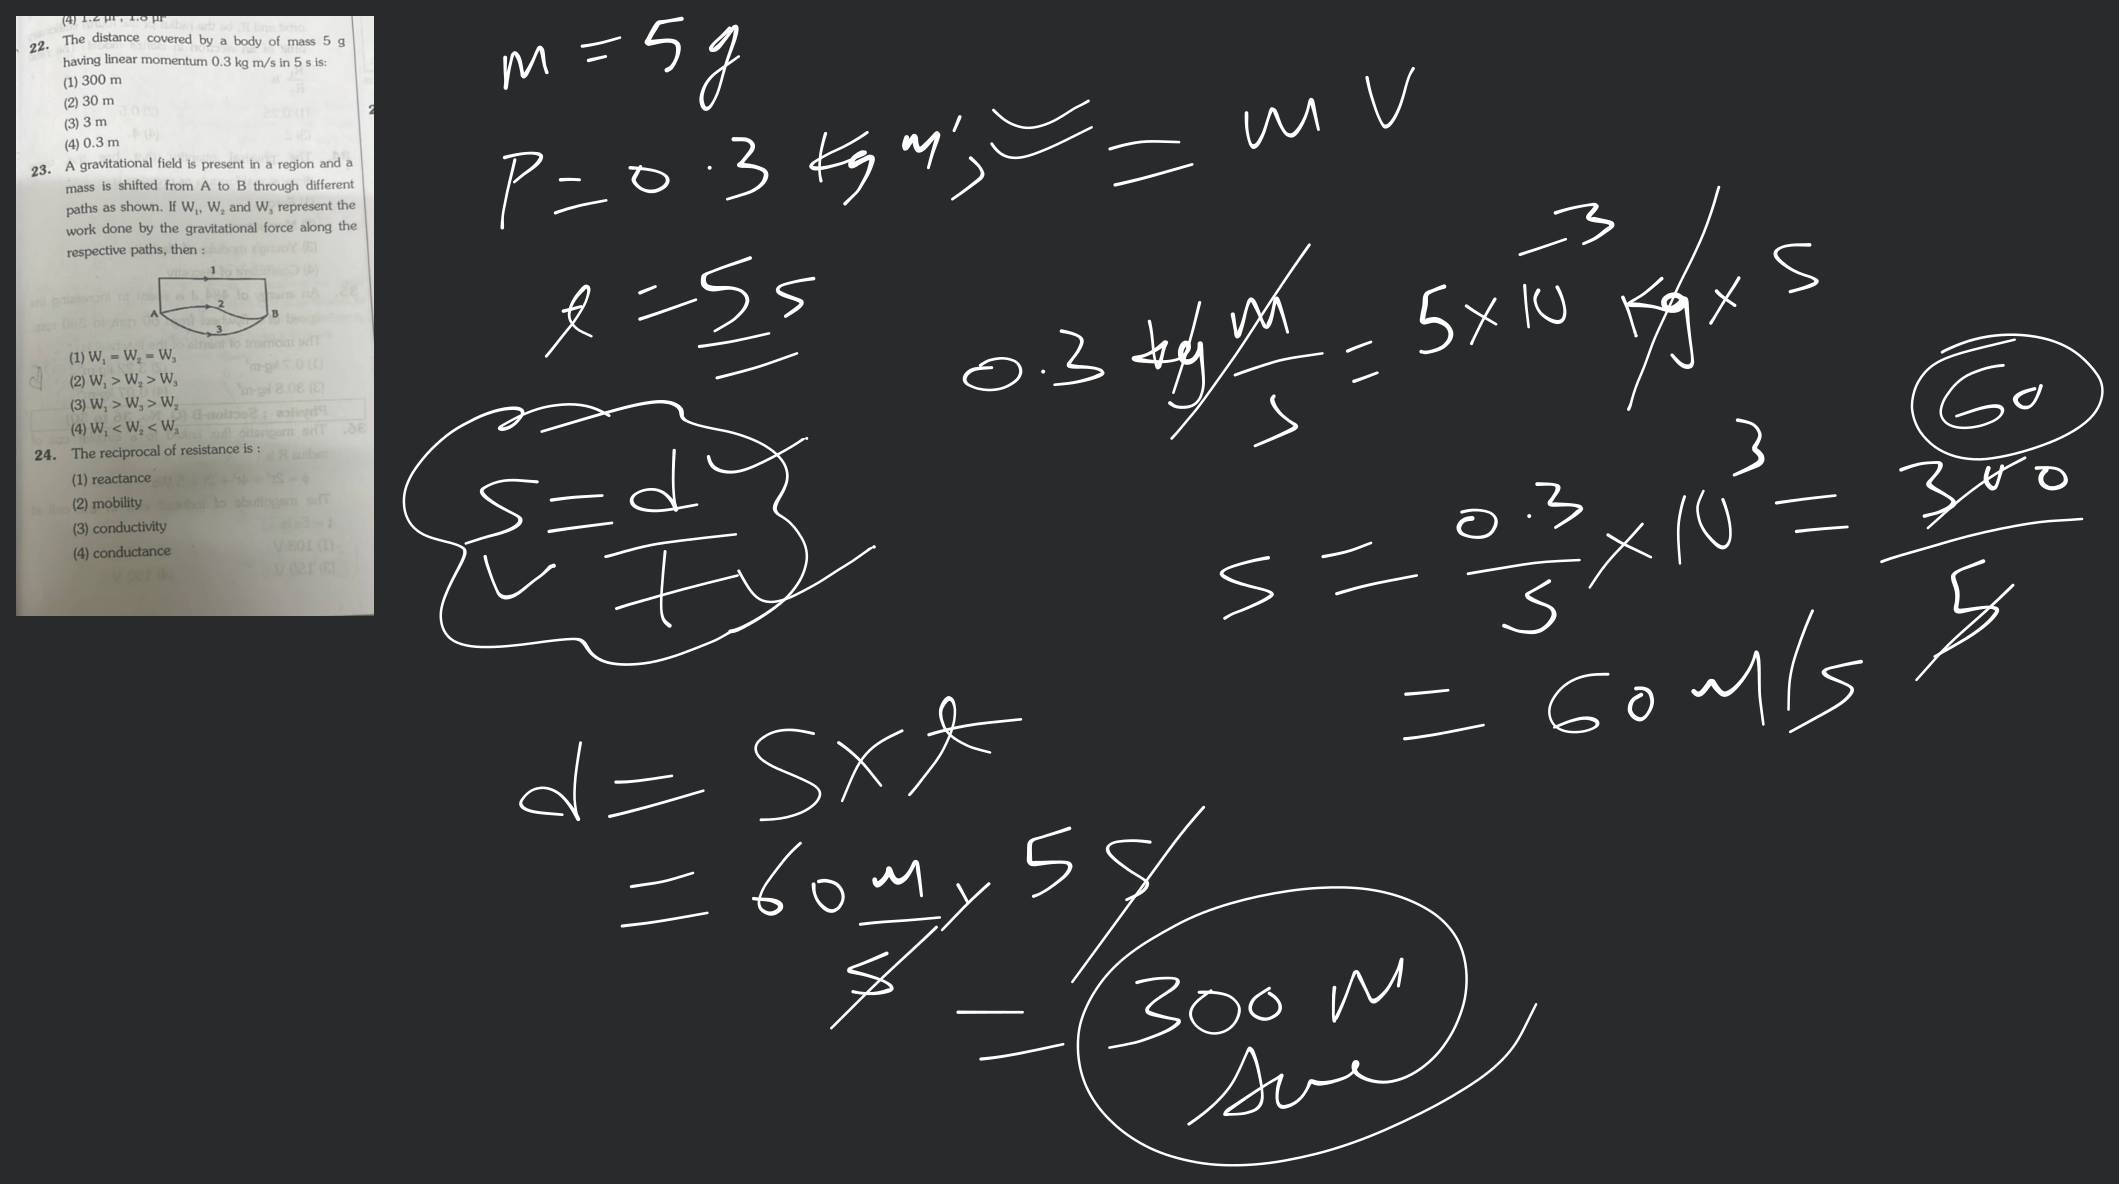 (4) 1.2 μF, 1.8 μF
22. The distance covered by a body of mass 5 g
having linear momentum 0.3 kg m/s in 5 s is:
(1) 300 m
(2) 30 m
(3) 3 m
(4) 0.3 m
23. A gravitational field is present in a region and a
mass is shifted from A to B through different
paths as shown. If W₁, W₂ and W₃ represent the
work done by the gravitational force along the
respective paths, then :
1
2
A B
3
(1) W₁ = W₂ = W₃
(2) W₁ > W₂ > W₃
(3) W₁ > W₃ > W₂
(4) W₁ < W₂ < W₃
24. The reciprocal of resistance is :
(1) reactance
(2) mobility
(3) conductivity
(4) conductance
m = 5g
P = 0.3 kg m/s = m V
t = 5 s
0.3 kg m/s = 5 × 10⁻³ kg × s
s = d/t
s = 0.3/5 × 10³ = 300/5
60
= 60 m/s
d = s × t
= 60 m/s × 5 s
= 300 m